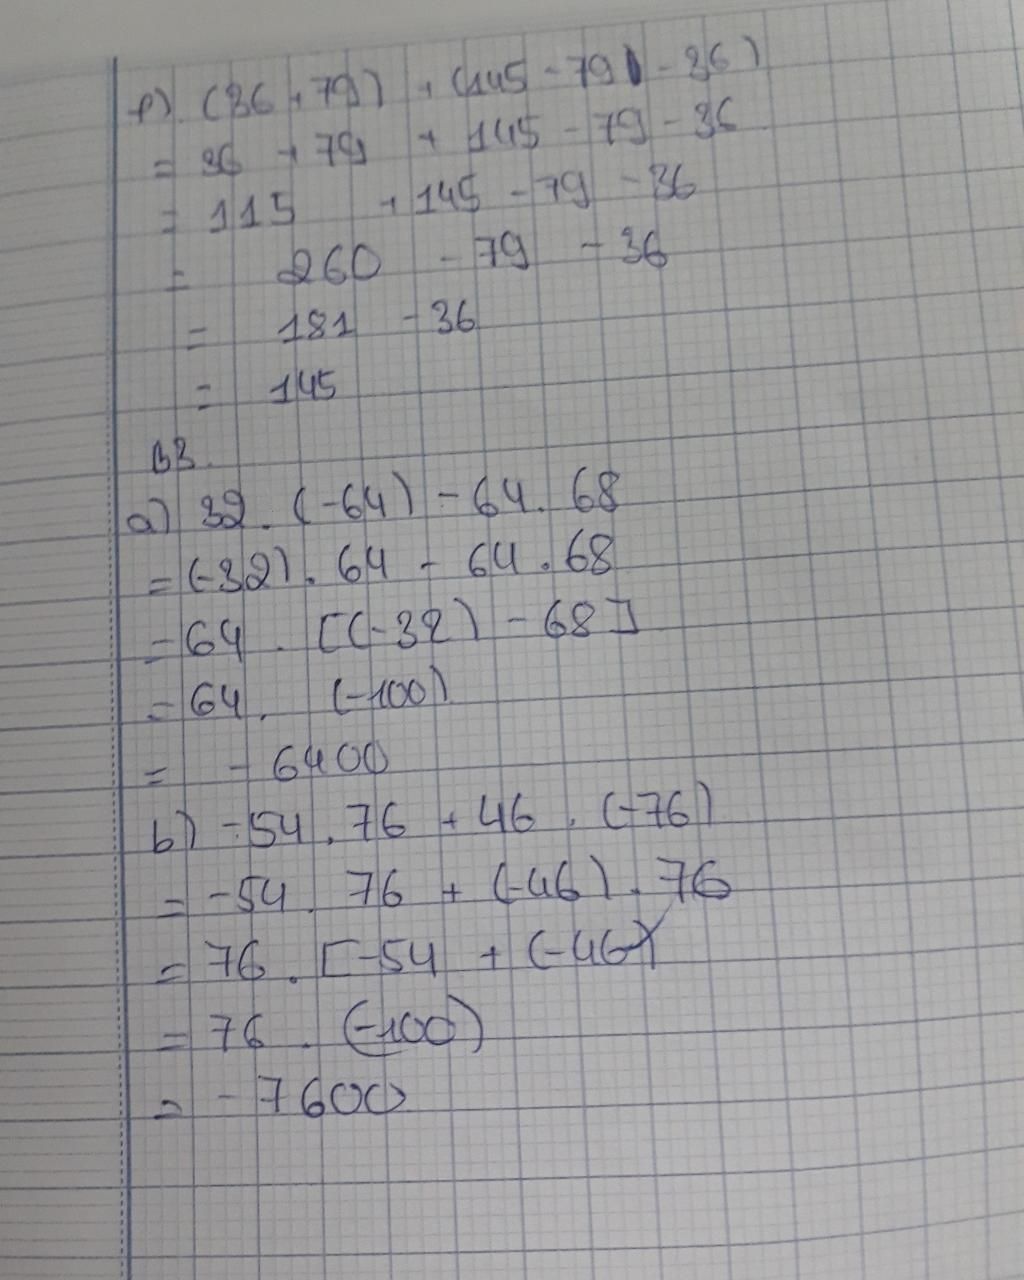 f) (36 + 79) + (145 - 79 - 36)
= 36 + 79 + 145 - 79 - 36
= 115 + 145 - 79 - 36
= 260 - 79 - 36
= 181 - 36
= 145
B3.
a) 32 . (-64) - 64 . 68
= (-32) . 64 - 64 . 68
= 64 . [(-32) - 68]
= 64 . (-100)
= - 6400
b) -54 . 76 + 46 . (-76)
= -54 . 76 + (-46) . 76
= 76 . [-54 + (-46)
= 76 . (-100)
= - 7600